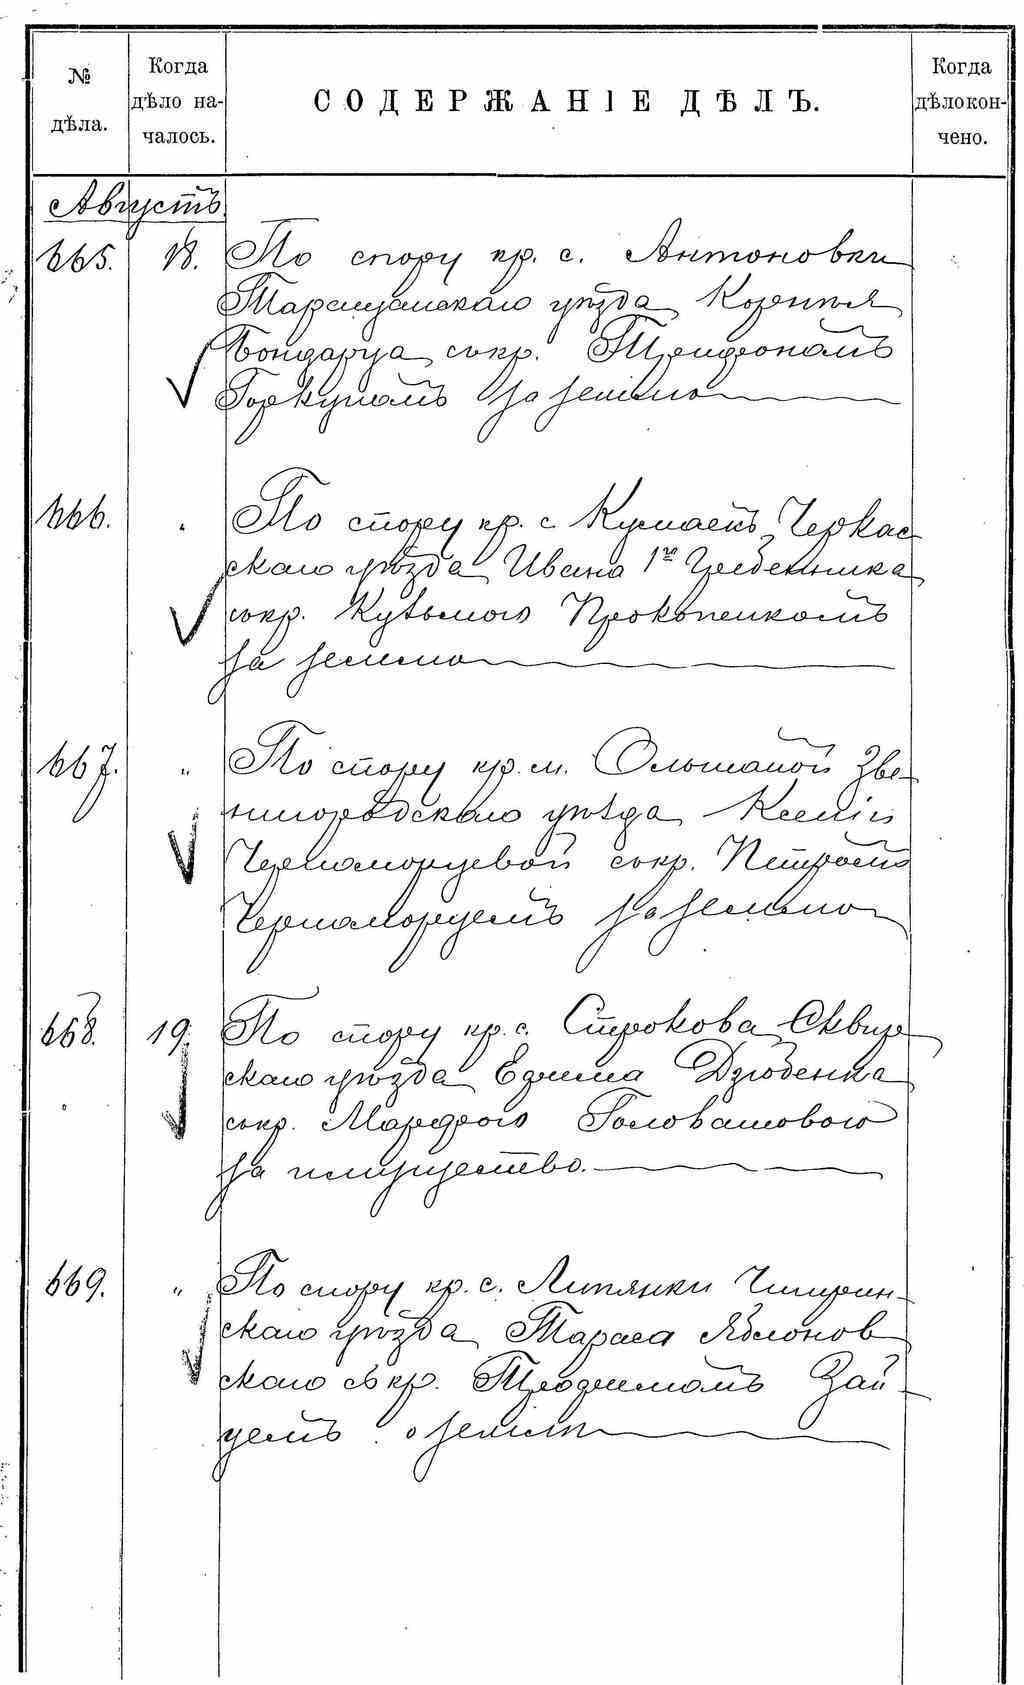 № дѣла.
Когда дѣло на-
чалось.
СОДЕРЖАНІЕ ДѢЛЪ.
Когда дѣло кон-
чено.
Августъ
665. 18. По спору кр. с. Антоновки
Таращанскаго уѣзда Корнилія
Бондаруа съ кр. Трифономъ
Горкуномъ за землю
666. „ По спору кр. с. Кумаекъ Черкас-
скаго уѣзда Ивана 1го Гребенника
съ кр. Кузьмою Прокопенкомъ
за землю
667. „ По спору кр. м. Ольшаной Зве-
нигородскаго уѣзда Ксеніи
Черноморцевой съ кр. Петромъ
Черноморцемъ за землю
668. 19. По спору кр. с. Строкова Сквир-
скаго уѣзда Ефима Дзюбенка
съ кр. Марфою Головашовою
за имущество.
669. „ По спору кр. с. Липянки Чигирин-
скаго уѣзда Тараса Яблонов
скаго съ кр. Трофимомъ Зай-
цемъ о землѣ